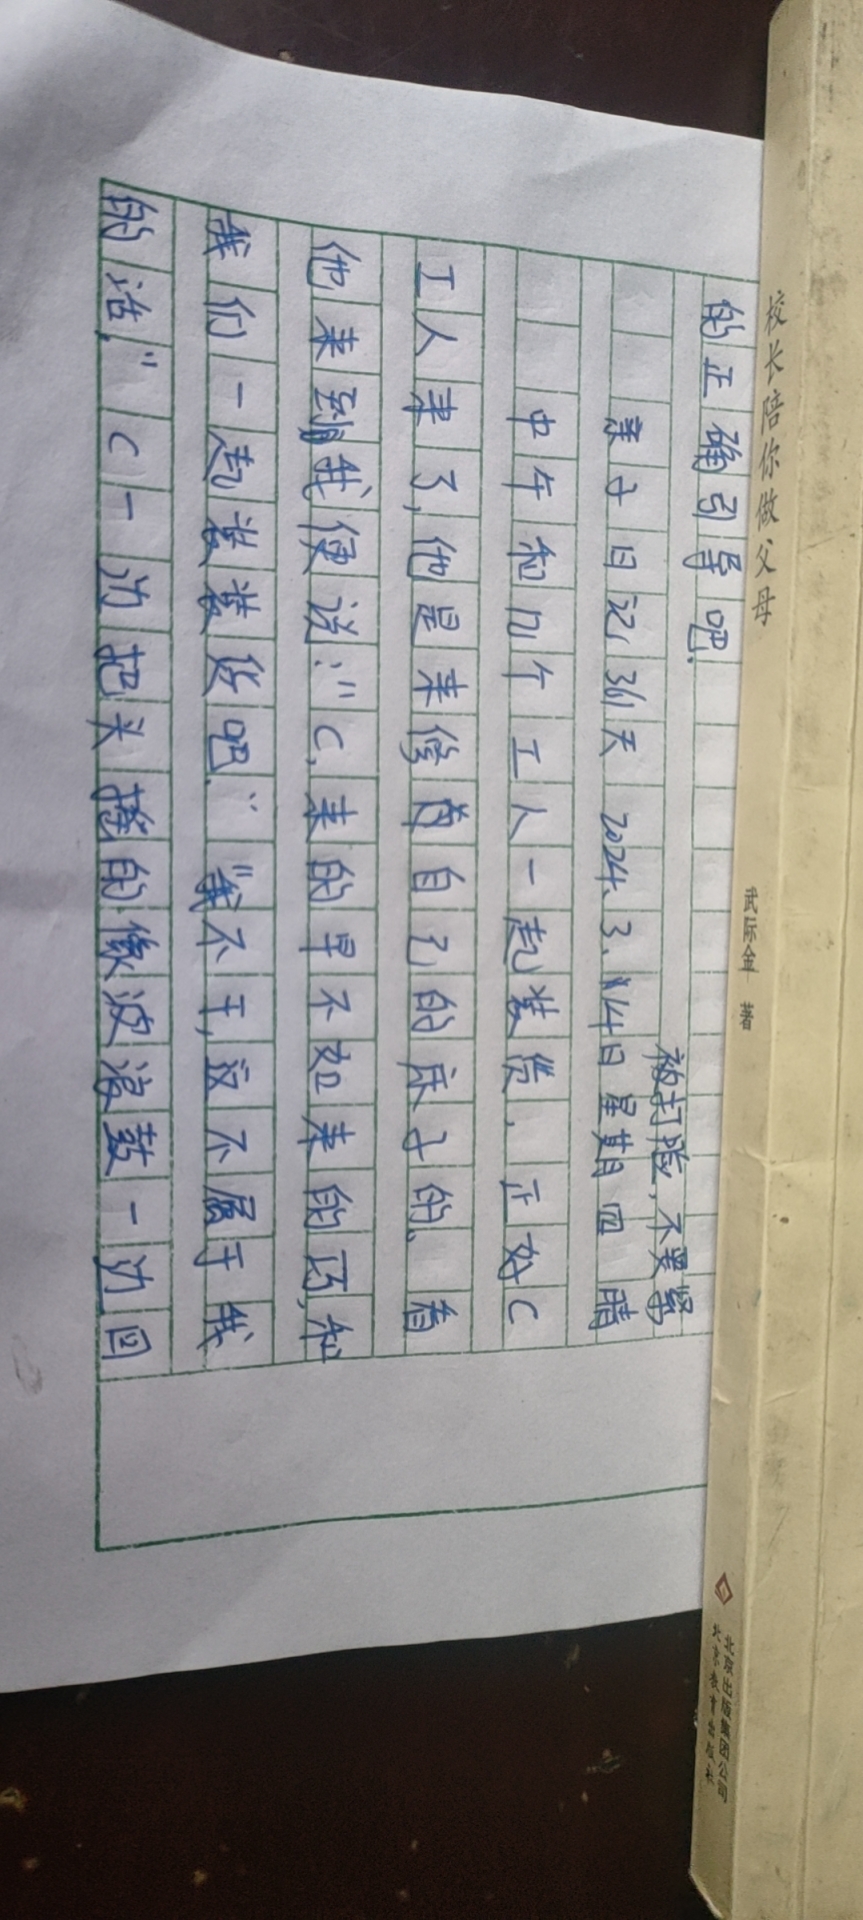 校长陪你做父母
武际金 著
北京出版集团公司
北京教育出版社
的正确引导吧.
被打脸,不要紧
亲子日记361天 2024.3.14日星期四 晴
中午和几个工人一起装货,正好C
工人来了,他是来修着自己的床子的、看
他来到我便说:"C,来的早不如来的巧,和
我们一起装装货吧."“我不干,这不属于我
的活,"C一边把头摇的像波浪鼓一边回